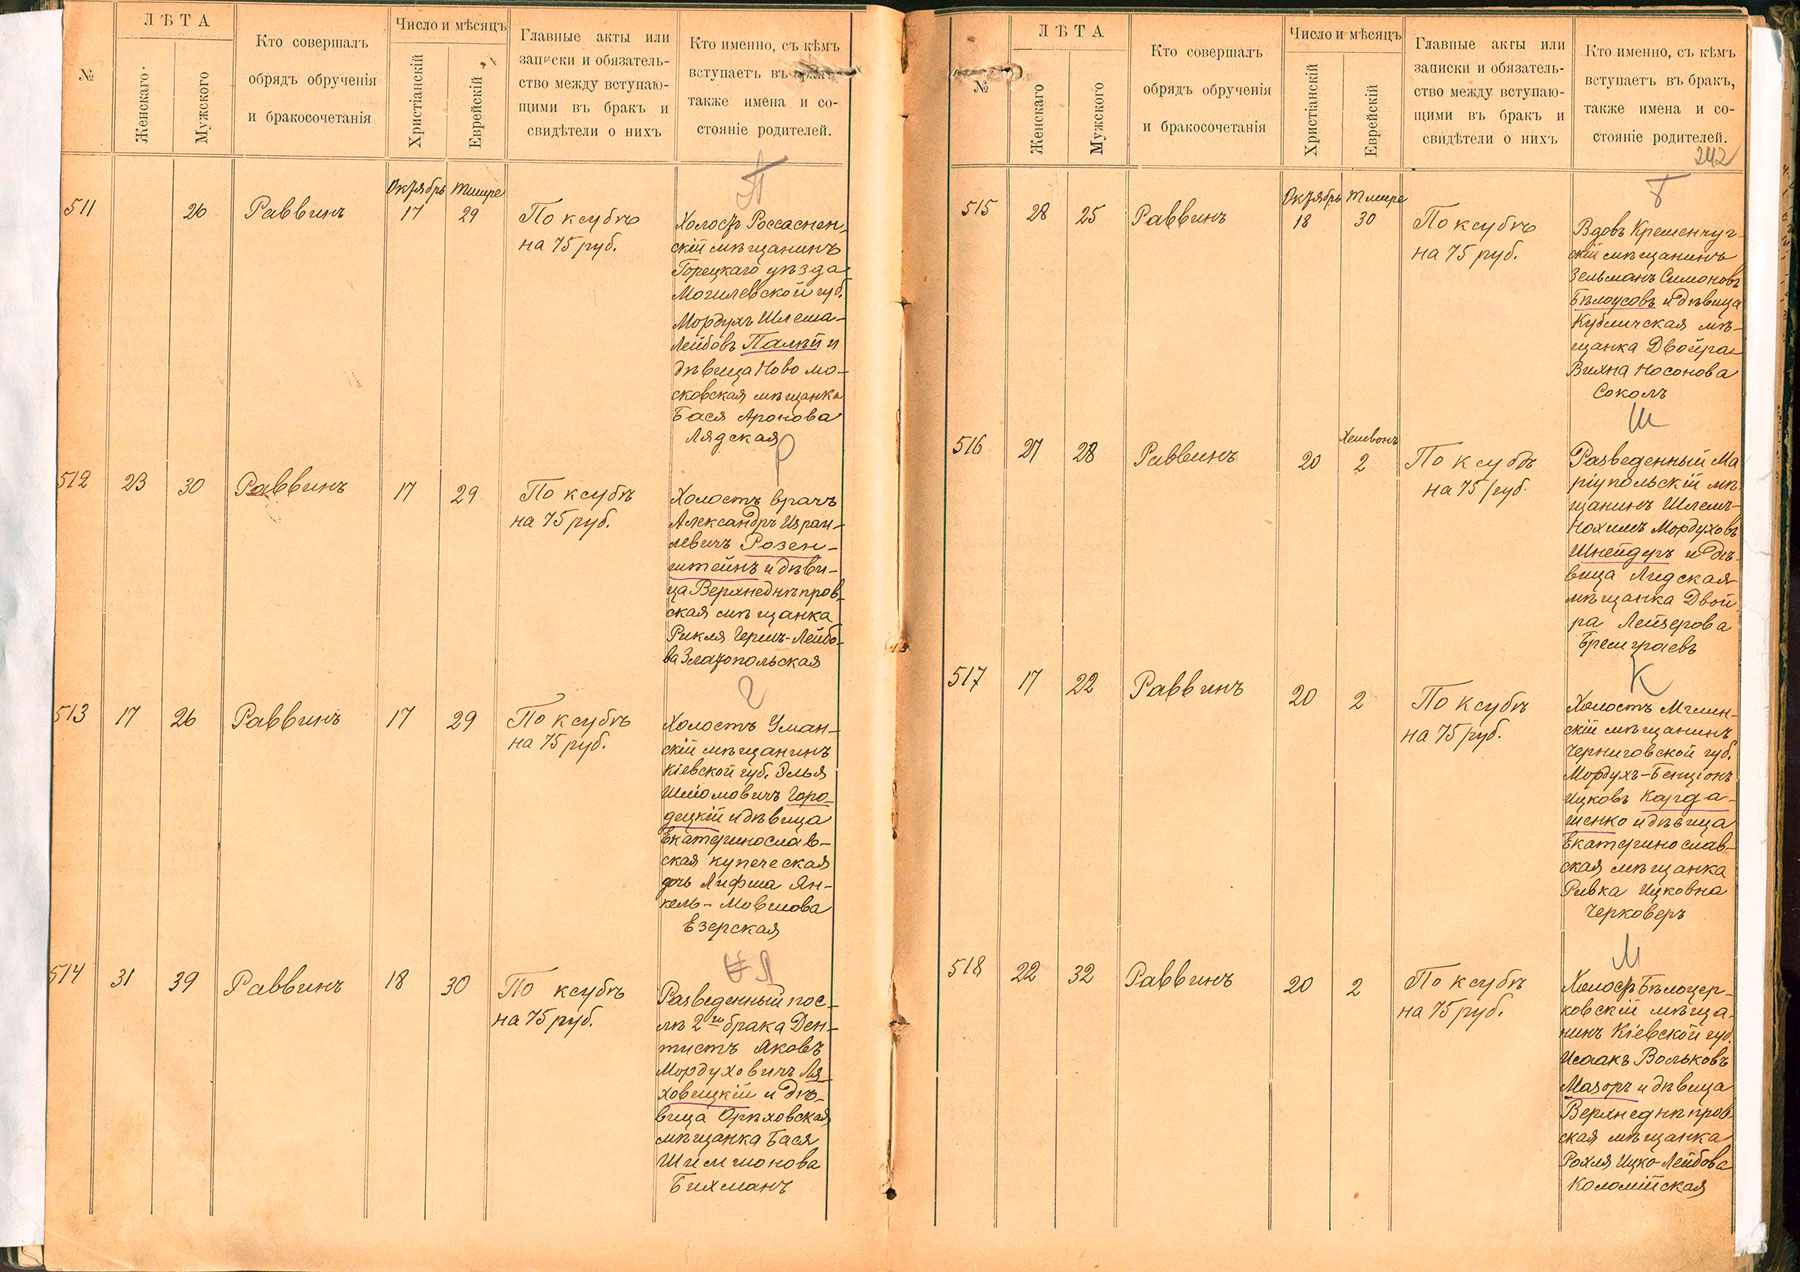 №
ЛѢТА
Женскаго
Мужского
Кто совершалъ
обрядъ обрученія
и бракосочетанія
Число и мѣсяцъ
Христіанскій
Еврейскій
Главные акты или
записки и обязатель-
ство между вступаю-
щими въ бракъ и
свидѣтели о нихъ
Кто именно, съ кѣмъ
вступаетъ въ бракъ,
также имена и со-
стояніе родителей.
П
511
26
Раввинъ
Октябрь
17
Тишре
29
По ксубѣ
на 75 руб.
Холост Россаснен-
скій мѣщанинъ
Горецкаго уѣзда
Могилевской губ.
Мордухъ Шлема-
Лейбовъ Палѣй и
дѣвица Ново мо-
сковская мѣщанка
Бася Аронова
Лядская
Р
512
23
30
Раввинъ
17
29
По ксубѣ
на 75 руб.
Холостъ врачъ
Александръ Израи-
левичъ Розен-
штейнъ и дѣви-
ца Верхнеднѣпров-
ская мѣщанка
Рикля Герш-Лейбо-
ва Златопольская
Г
513
17
26
Раввинъ
17
29
По ксубѣ
на 75 руб.
Холостъ Уман-
скій мѣщанинъ
Кіевской губ. Элья
Шліомовичъ Горо-
децкій и дѣвица
Екатеринослав-
ская купеческая
дочь Лифша Ян-
кель-Мовшова
Езерская
514
31
39
Раввинъ
18
30
По ксубѣ
на 75 руб.
Разведенный пос-
лѣ 2го брака Ден-
тистъ Яковъ
Мордуховичъ Ля-
ховицкій и дѣ-
вица Орѣховская
мѣщанка Бася
Шимшонова
Бихманъ
№
ЛѢТА
Женскаго
Мужского
Кто совершалъ
обрядъ обрученія
и бракосочетанія
Число и мѣсяцъ
Христіанскій
Еврейскій
Главные акты или
записки и обязатель-
ство между вступаю-
щими въ бракъ и
свидѣтели о нихъ
Кто именно, съ кѣмъ
вступаетъ въ бракъ,
также имена и со-
стояніе родителей.
242
Б
515
28
25
Раввинъ
Октябрь
18
Тишре
30
По ксубѣ
на 75 руб.
Вдовъ Кременчуг-
скій мѣщанинъ
Зельманъ Симоновъ
Бѣлоусовъ и дѣвица
Кубличская мѣ-
щанка Двойра
Вихна Носонова
Соколъ
Ш
516
27
28
Раввинъ
20
Хешвонъ
2
По ксубѣ
на 75 руб.
Разведенный Ма
ріупольскій мѣ-
щанинъ Шлемъ-
Нохимъ Мордуховъ
Шнейдеръ и дѣ-
вица Лидская
мѣщанка Двой
ра Лейзерова
К
517
17
22
Раввинъ
20
2
По ксубѣ
на 75 руб.
Холостъ Мглин-
скій мѣщанинъ
Черниговской губ.
Мордухъ-Бенціонъ
Ицковъ Карда-
шенко и дѣвица
Екатеринослав-
ская мѣщанка
Ривка Ицковна
Черковеръ
М
518
22
32
Раввинъ
20
2
По ксубѣ
на 75 руб.
Холост Бѣлоцер-
ковскій мѣща-
нинъ Кіевской губ.
Исаакъ Вольковъ
Мазоръ и дѣвица
Верхнеднѣпров
ская мѣщанка
Рохля Ицко-Лейбова
Коломійская